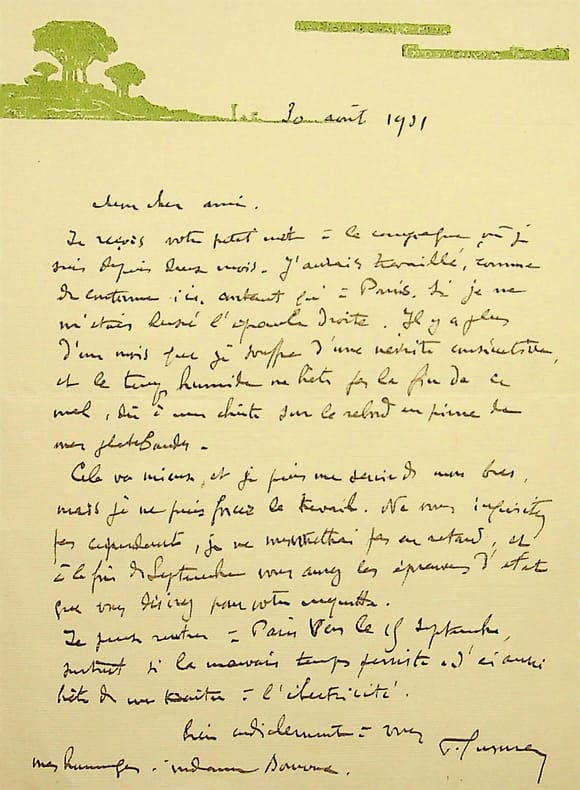 30 août 1931
cher ami.
Je reçois votre petit mot à la campagne, où je
suis depuis deux mois. J'aurais travaillé, comme
de coutume ici, autant qu'à Paris. Si je ne
m'étais luxé l'épaule droite. Il y a plus
d'un mois que je souffre d'une névrite consécutive,
et le temps humide ne hâte pas la fin de ce
mal, dû à une chûte sur le rebord en pierre de
mes plates bandes.
Cela va mieux, et je puis me servir de mon bras,
mais je ne puis forcer le travail. Ne vous inquiétez
pas cependant, je ne me mettrai pas en retard, et
à la fin de Septembre vous aurez les épreuves d'état
que vous désirez pour votre enquête.
Je pense rentrer à Paris vers le 15 septembre,
surtout si le mauvais temps persiste. J'ai aussi
hâte de me traiter à l'électricité.
bien cordialement à vous
mes hommages à madame